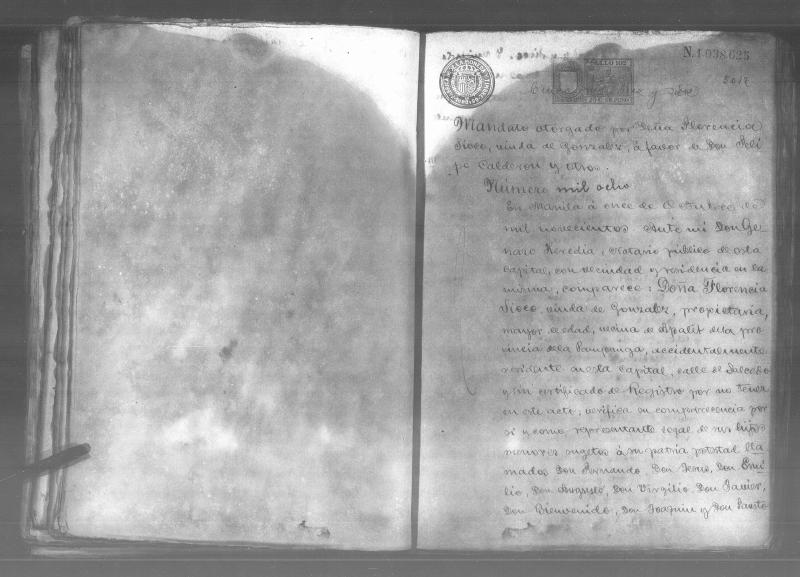 N. 1.038.625
SELLO 10º
2017
y siete
Mandato otorgado por Doña Florencia
Sioco, viuda de Gonzalez, á favor de Don Feli
pe Calderon y otro.
Número mil ocho
En Manila á once de Octubre de
mil novecientos. Ante mi Don Ge
naro Heredia, Notario público de esta
capital, con vecindad y residencia en la
misma, comparece: Doña Florencia
Sioco, viuda de Gonzalez, propietaria,
mayor de edad, vecina de Apalit de la pro
vincia de la Pampanga, accidentalmente
residente en esta capital, calle de Salcedo
y sin certificado de Registro por no tener
en este acto; verifica su comparecencia por
si y como representante legal de sus hijos
menores sugetos á su patria potestad lla
mados Don Fernando, Don Jesus, Don Emi
lio, Don Augusto, Don Virgilio, Don Javier,
Don Bienvenido, Don Joaquin y Don Fausto